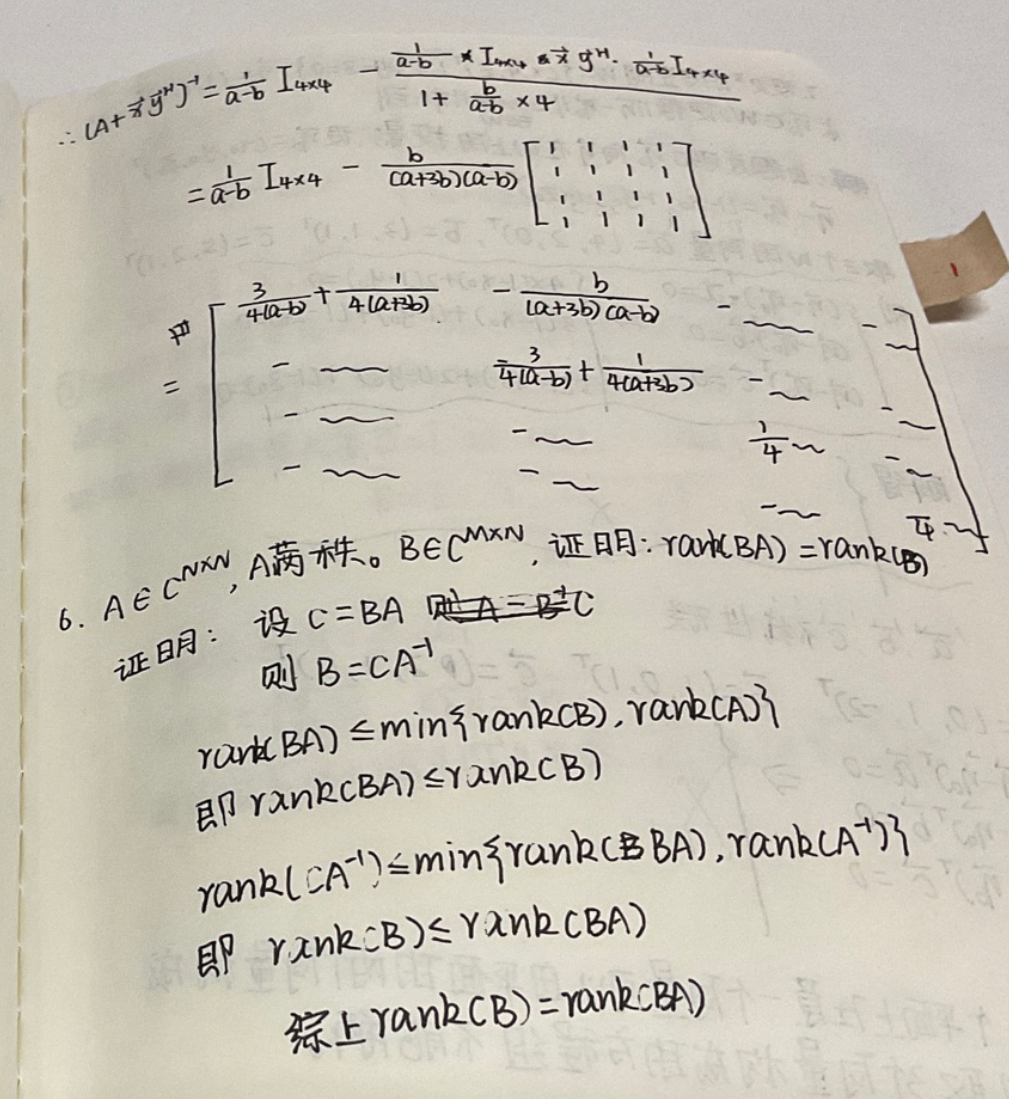 ∴ (A+x⃗y⃗ᴴ)⁻¹ = 1/(a-b) I₄ₓ₄ - (1/(a-b) × I₄ₓ₄ x⃗ y⃗ᴴ · 1/(a-b) I₄ₓ₄)/(1 + b/(a-b) × 4)
= 1/(a-b) I₄ₓ₄ - b/((a+3b)(a-b)) [1 1 1 1
1 1 1 1
1 1 1 1
1 1 1 1]
= [3/(4(a-b)) + 1/(4(a+3b)) - b/((a+3b)(a-b)) - ~ - ~
- ~ 3/(4(a-b)) + 1/(4(a+3b)) - ~ - ~
- ~ - ~ 1/4 ~ - ~
- ~ - ~ - ~ 1/4 ~]
6. A∈Cᴺˣᴺ, A满秩。B∈Cᴹˣᴺ, 证明: rank(BA) = rank(B)
证明: 设 C=BA 则 A=B⁻¹C
则 B=CA⁻¹
rank(BA) ≤ min{rank(B), rank(A)}
即 rank(BA) ≤ rank(B)
rank(CA⁻¹) ≤ min{rank(BA), rank(A⁻¹)}
即 rank(B) ≤ rank(BA)
综上 rank(B) = rank(BA)